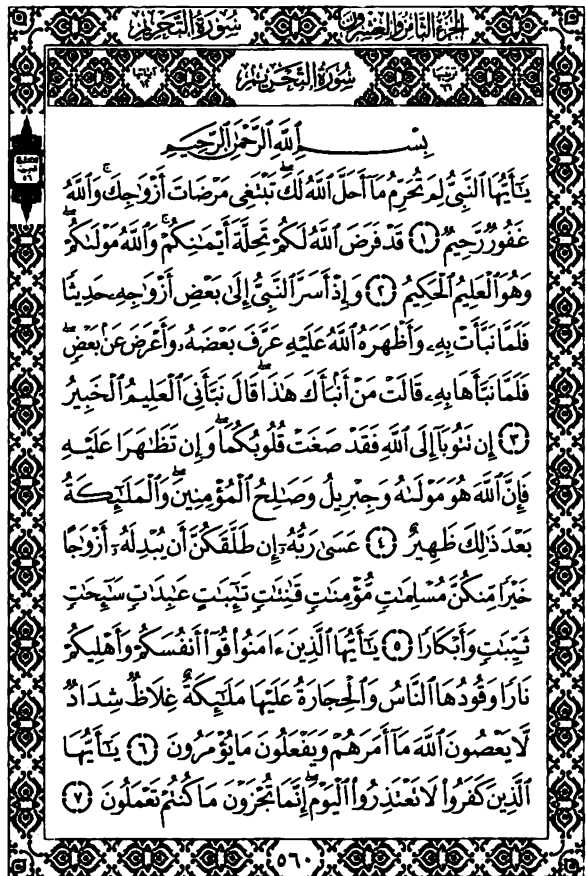 الجزء الثامن والعشرون سورة التحريم
سورة التحريم
بِسْمِ ٱللَّهِ ٱلرَّحْمَٰنِ ٱلرَّحِيمِ
يَٰٓأَيُّهَا ٱلنَّبِيُّ لِمَ تُحَرِّمُ مَآ أَحَلَّ ٱللَّهُ لَكَۖ تَبْتَغِى مَرْضَاتَ أَزْوَٰجِكَۚ وَٱللَّهُ
غَفُورٌ رَّحِيمٌ ١ قَدْ فَرَضَ ٱللَّهُ لَكُمْ تَحِلَّةَ أَيْمَٰنِكُمْۚ وَٱللَّهُ مَوْلَىٰكُمْۖ
وَهُوَ ٱلْعَلِيمُ ٱلْحَكِيمُ ٢ وَإِذْ أَسَرَّ ٱلنَّبِيُّ إِلَىٰ بَعْضِ أَزْوَٰجِهِۦ حَدِيثًا
فَلَمَّا نَبَّأَتْ بِهِۦ وَأَظْهَرَهُ ٱللَّهُ عَلَيْهِ عَرَّفَ بَعْضَهُۥ وَأَعْرَضَ عَنۢ بَعْضٍۖ
فَلَمَّا نَبَّأَهَا بِهِۦ قَالَتْ مَنْ أَنۢبَأَكَ هَٰذَاۖ قَالَ نَبَّأَنِىَ ٱلْعَلِيمُ ٱلْخَبِيرُ
٣ إِن تَتُوبَآ إِلَى ٱللَّهِ فَقَدْ صَغَتْ قُلُوبُكُمَاۖ وَإِن تَظَٰهَرَا عَلَيْهِ
فَإِنَّ ٱللَّهَ هُوَ مَوْلَىٰهُ وَجِبْرِيلُ وَصَٰلِحُ ٱلْمُؤْمِنِينَۖ وَٱلْمَلَٰٓئِكَةُ
بَعْدَ ذَٰلِكَ ظَهِيرٌ ٤ عَسَىٰ رَبُّهُۥٓ إِن طَلَّقَكُنَّ أَن يُبْدِلَهُۥٓ أَزْوَٰجًا
خَيْرًا مِّنكُنَّ مُسْلِمَٰتٍ مُّؤْمِنَٰتٍ قَٰنِتَٰتٍ تَٰٓئِبَٰتٍ عَٰبِدَٰتٍ سَٰٓئِحَٰتٍ
ثَيِّبَٰتٍ وَأَبْكَارًا ٥ يَٰٓأَيُّهَا ٱلَّذِينَ ءَامَنُوا۟ قُوٓا۟ أَنفُسَكُمْ وَأَهْلِيكُمْ
نَارًا وَقُودُهَا ٱلنَّاسُ وَٱلْحِجَارَةُ عَلَيْهَا مَلَٰٓئِكَةٌ غِلَاظٌ شِدَادٌ
لَّا يَعْصُونَ ٱللَّهَ مَآ أَمَرَهُمْ وَيَفْعَلُونَ مَا يُؤْمَرُونَ ٦ يَٰٓأَيُّهَا
ٱلَّذِينَ كَفَرُوا۟ لَا تَعْتَذِرُوا۟ ٱلْيَوْمَۖ إِنَّمَا تُجْزَوْنَ مَا كُنتُمْ تَعْمَلُونَ ٧
٥٦٠